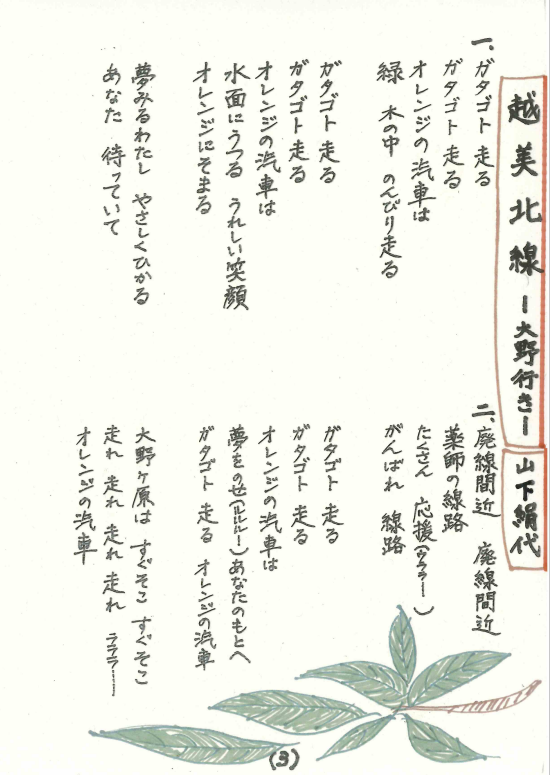 越美北線 ー大野行きー 山下絹代
一、ガタゴト 走る
ガタゴト 走る
オレンジの汽車は
緑 木の中 のんびり走る
ガタゴト 走る
ガタゴト 走る
オレンジの汽車は
水面にうつる うれしい笑顔
オレンジにそまる
夢みるわたし やさしくひかる
あなた 待っていて
二、廃線間近 廃線間近
薬師の線路
たくさん 応援(ウララー)
がんばれ 線路
ガタゴト 走る
ガタゴト 走る
オレンジの汽車は
夢をのせ(ルルルー)あなたのもとへ
ガタゴト 走る オレンジの汽車
大野ヶ原は すぐそこ すぐそこ
走れ 走れ 走れ 走れ ララララ……
オレンジの汽車
(3)